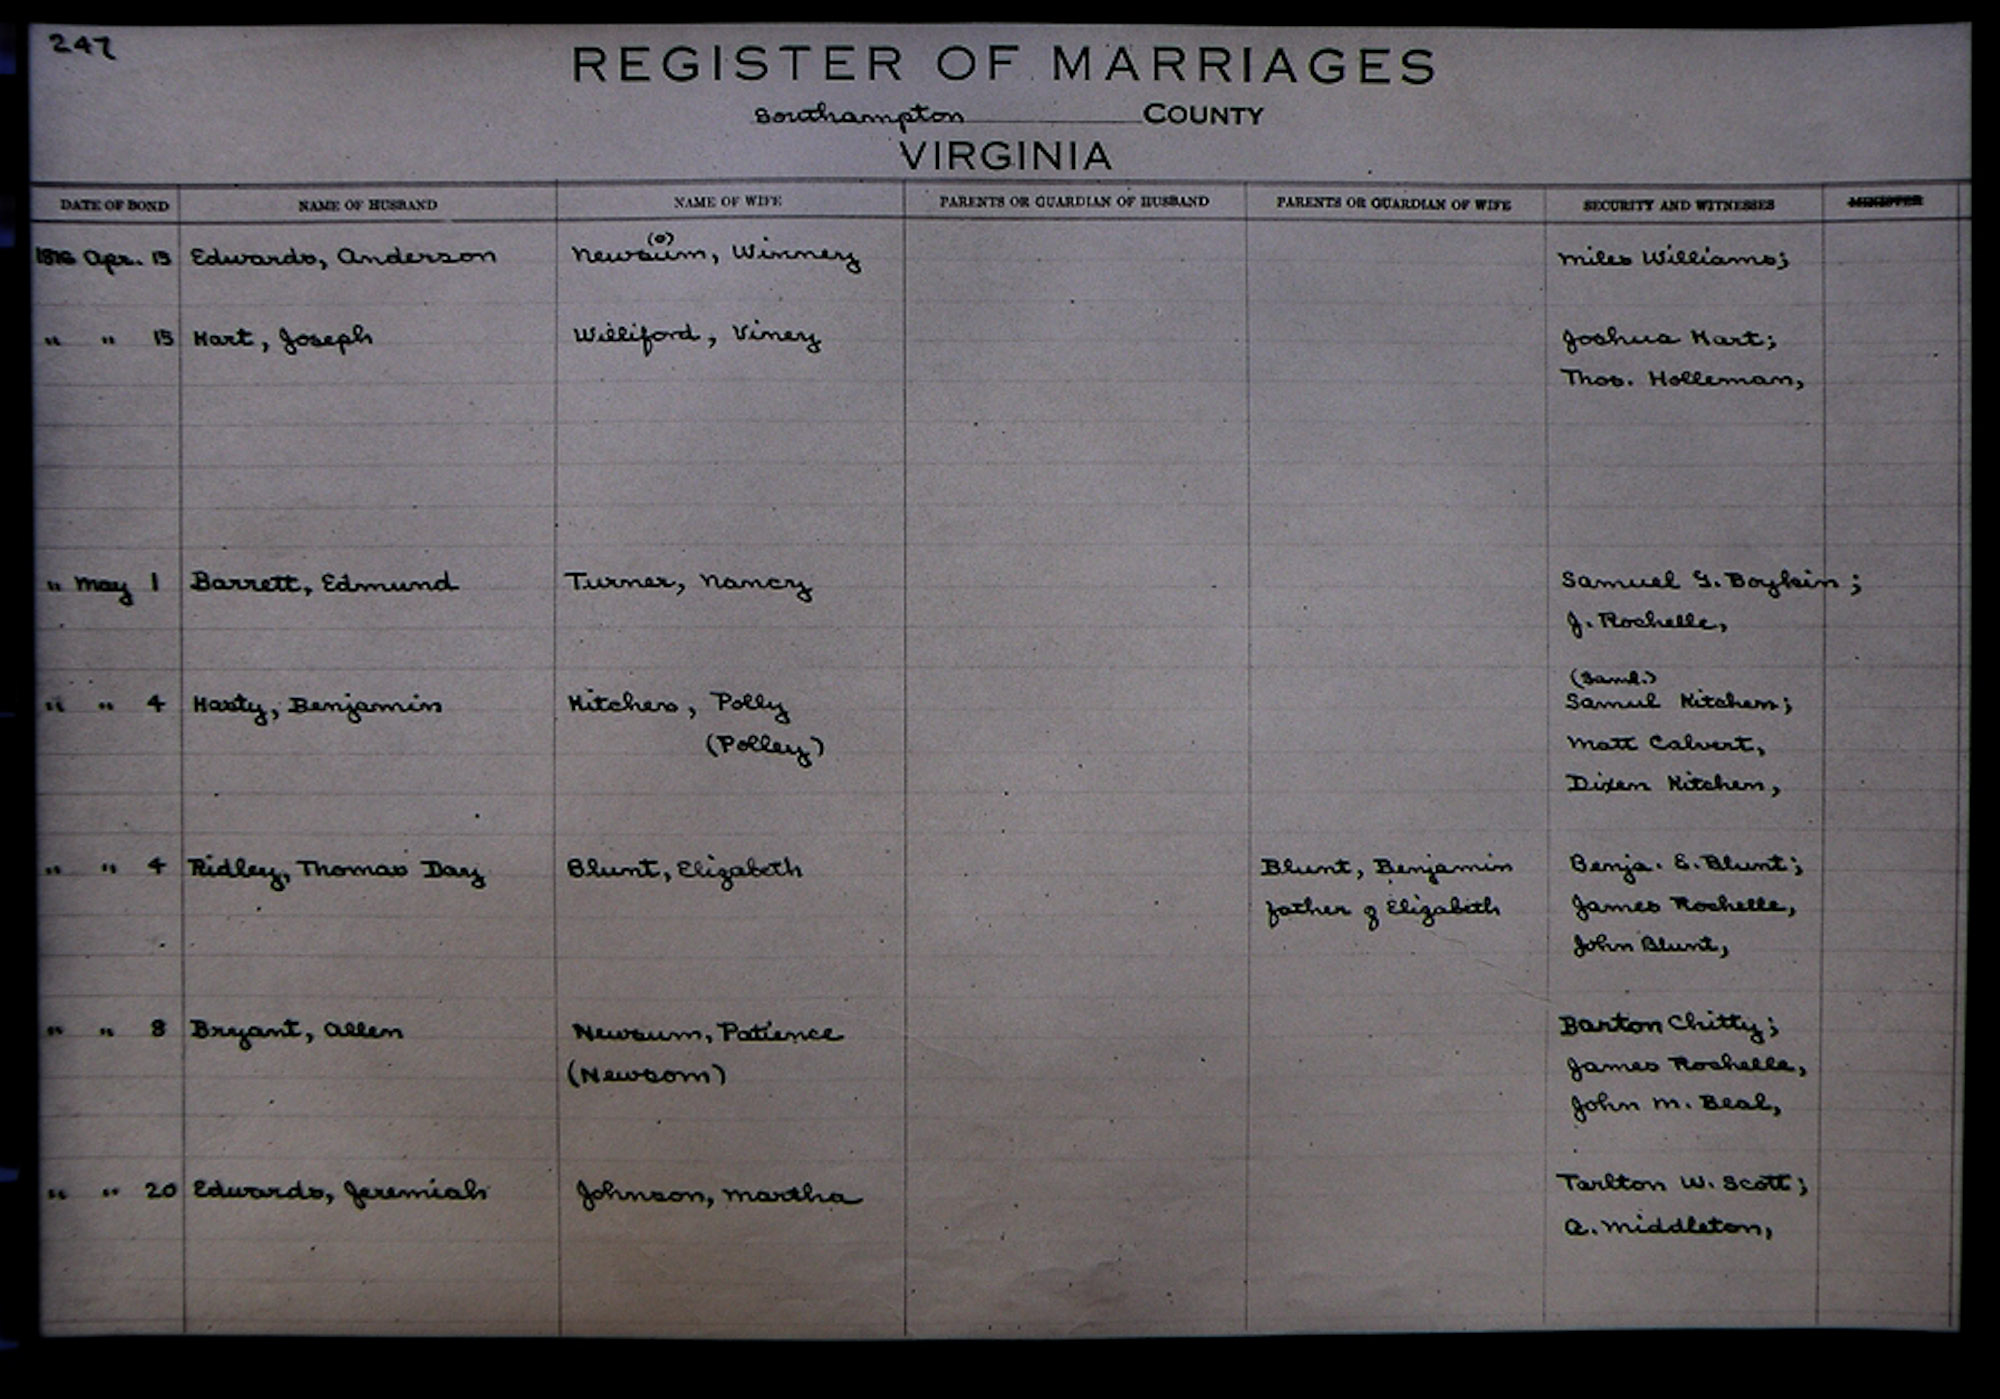 247
REGISTER OF MARRIAGES
Southampton COUNTY
VIRGINIA
DATE OF BOND NAME OF HUSBAND NAME OF WIFE PARENTS OR GUARDIAN OF HUSBAND PARENTS OR GUARDIAN OF WIFE SECURITY AND WITNESSES MINISTER
(o)
1816 Apr. 15 Edwards, Anderson Newsum, Winney Miles Williams;
" " 15 Hart, Joseph Williford, Viney Joshua Hart;
Thos. Holleman,
" May 1 Barrett, Edmund Turner, Nancy Samuel G. Boykin;
J. Rochelle,
(Saml.)
" " 4 Hasty, Benjamin Kitchen, Polly Samul Kitchen;
(Polley) Matt Calvert,
Dixen Kitchen,
" " 4 Ridley, Thomas Day Blunt, Elizabeth Blunt, Benjamin Benja. E. Blunt;
father of Elizabeth James Rochelle,
John Blunt,
" " 8 Bryant, Allen Newsum, Patience Barton Chitty;
(Newsom) James Rochelle,
John M. Beal,
" " 20 Edwards, Jeremiah Johnson, Martha Tarlton W. Scott;
A. Middleton,